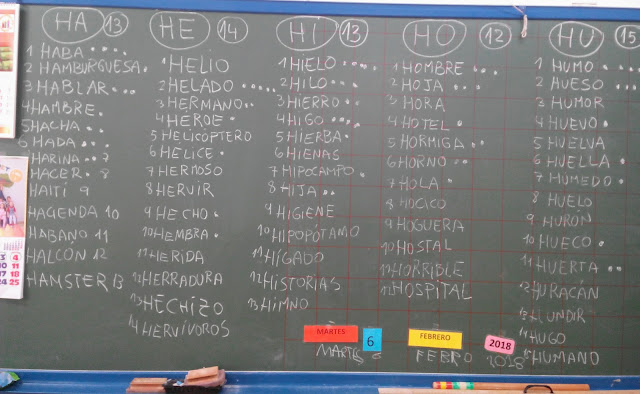 HA 13
1 HABA
2 HAMBURGUESA
3 HABLAR
4 HAMBRE
5 HACHA
6 HADA
HARINA 7
HACER 8
HAITÍ 9
HAGENDA 10
HABANO 11
HALCÓN 12
HAMSTER 13
HE 14
1 HELIO
2 HELADO
3 HERMANO
4 HEROE
5 HELICÓPTERO
6 HELICE
7 HERMOSO
8 HERVIR
9 HECHO
10 HEMBRA
11 HERIDA
12 HERRADURA
13 HECHIZO
14 HERVIVOROS
HI 13
1 HIELO
2 HILO
3 HIERRO
4 HIGO
5 HIERBA
6 HIENAS
7 HIPOCAMPO
8 HIJA
9 HIGIENE
10 HIPOPÓTAMO
11 HÍGADO
12 HISTORIAS
13 HIMNO
HO 12
1 HOMBRE
2 HOJA
3 HORA
4 HOTEL
5 HORMIGA
6 HORNO
7 HOLA
8 HOCICO
9 HOGUERA
10 HOSTAL
11 HORRIBLE
12 HOSPITAL
HU 15
1 HUMO
2 HUESO
3 HUMOR
4 HUEVO
5 HUELVA
6 HUELLA
7 HÚMEDO
8 HUELO
9 HURÓN
10 HUECO
11 HUERTA
12 HURACÁN
13 HUNDIR
14 HUGO
15 HUMANO
MARTES 6 FEBRERO 2018
MARTES 6 FEBRO 2018
3 4
10 11
17 18
24 25